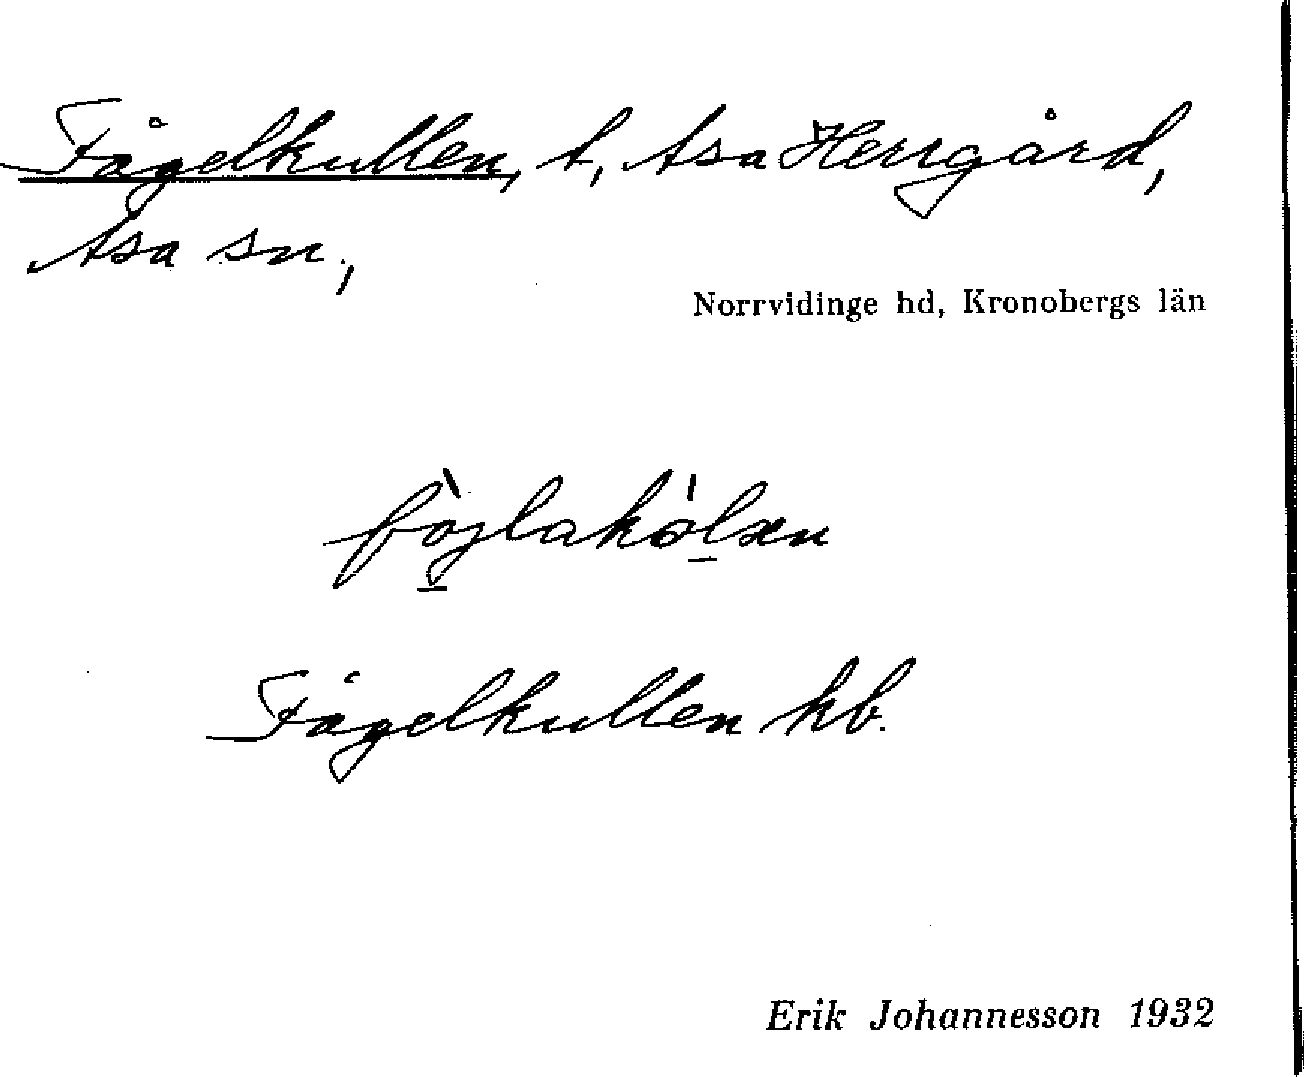 Fågelkullen, t, Asa Herrgård,
Asa sn.,
Norrvidinge hd, Kronobergs län
Fågelkullen kb.
Erik Johannesson 1932